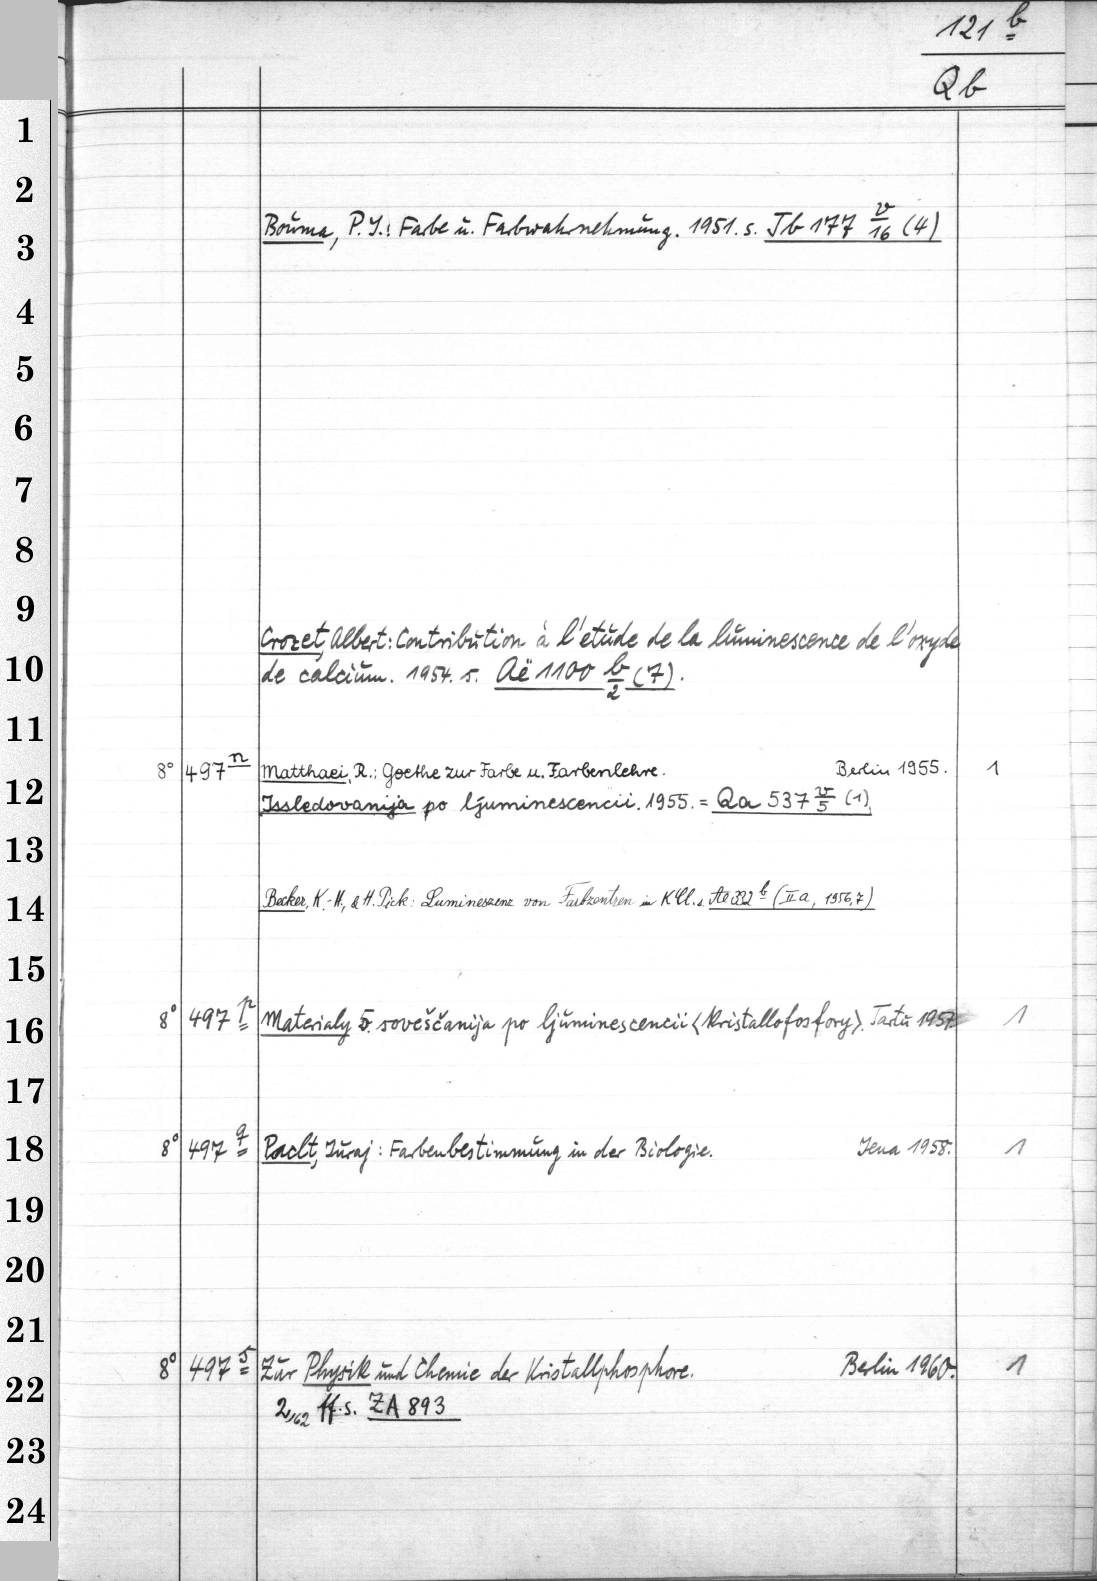 121 b
Qb
1
2
3
4
5
6
7
8
9
10
11
12
13
14
15
16
17
18
19
20
21
22
23
24
Boŭma, P. J.: Farbe ŭ. Farbwahrnehmŭng. 1951. s. Jb 177 v/16 (4)
Crozet, Albert: Contribŭtion à l'etŭde de la lŭminescence de l'oxyde
de calciŭm. 1954. s. Aë 1100 b/2 (7).
8° 497 n Matthaei, R.: Goethe zur Farbe u. Farbenlehre. Berlin 1955. 1
Issledovanija po ljuminescencii. 1955. = Qa 537 v/5 (1)
Becker, K.-H., & H. Pick: Lumineszenz von Farbzentren in KCl. s. Ae 392 b (IIa, 1956,7)
8° 497 p Materialy 5. soveščanija po ljŭminescencii <Kristallofosfory>. Tartŭ 1957 1
8° 497 q Paclt, Jŭraj: Farbenbestimmŭng in der Biologie. Jena 1958. 1
8° 497 s Zŭr Physik ŭnd Chemie der Kristallphosphore. Berlin 1960. 1
2,162 ff. s. ZA 893